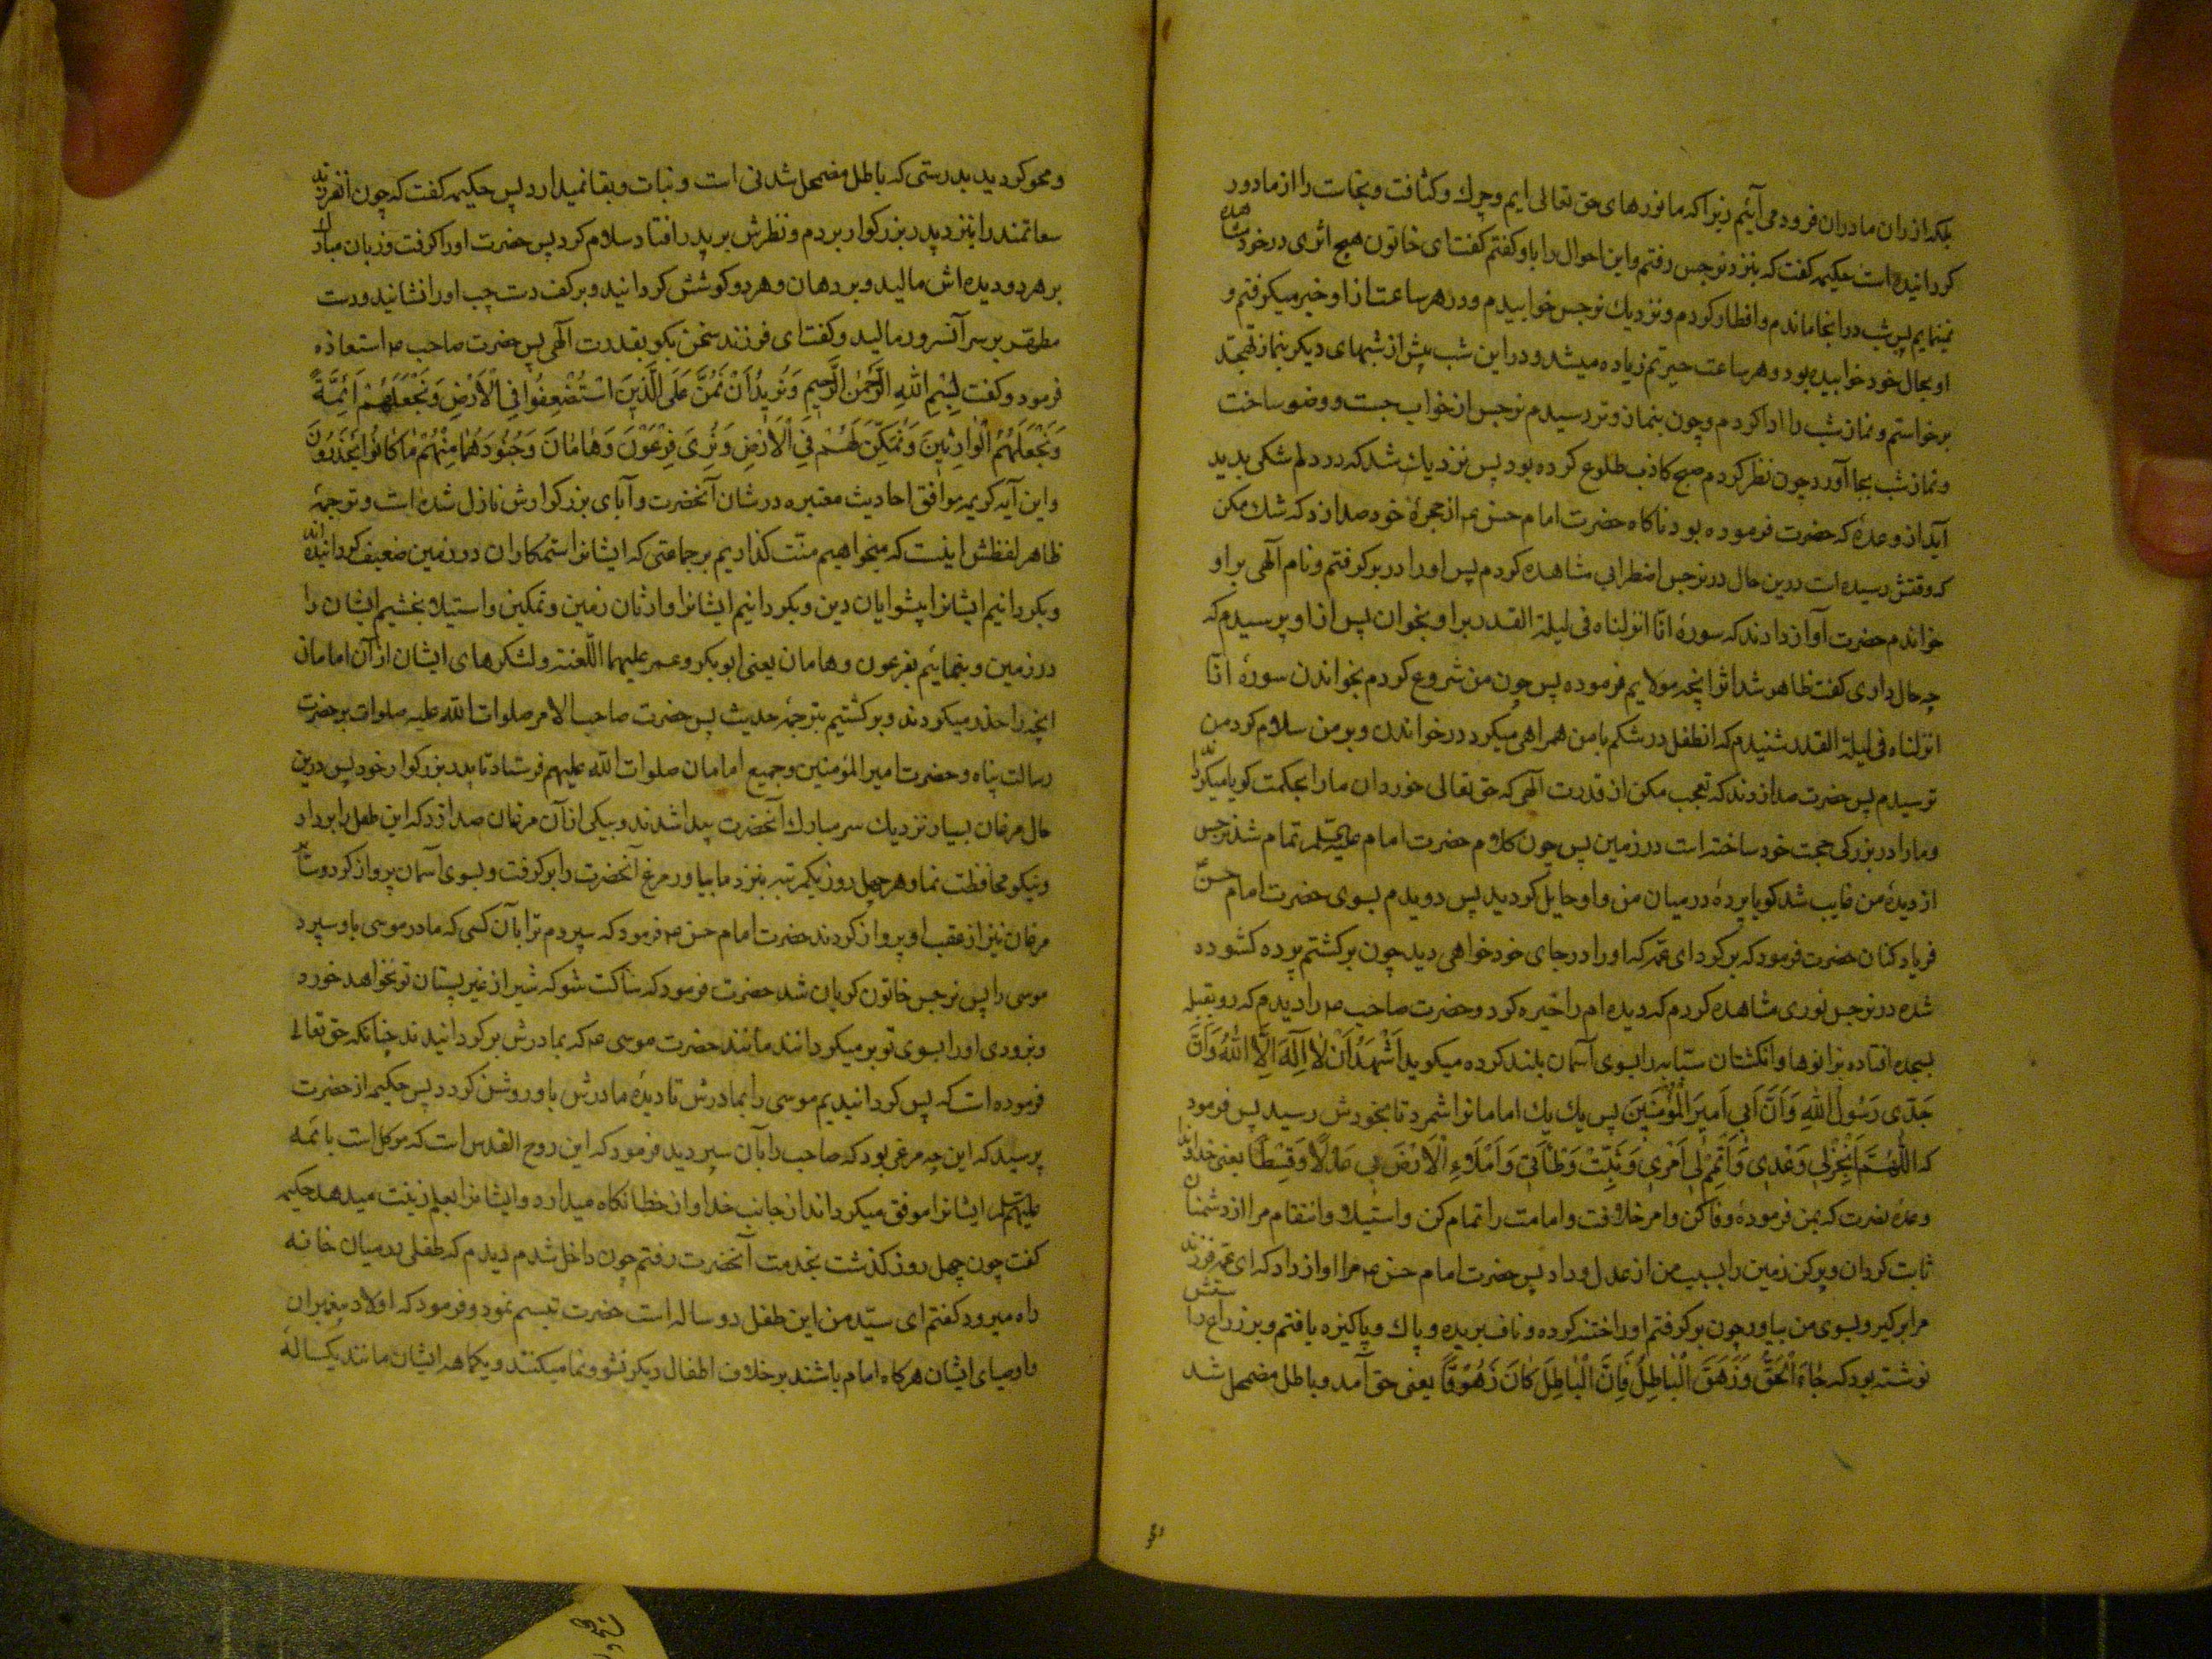 بلکه از ران مادران فرود می آئیم زیرا که ما نورهای حق تعالی ایم و چرك و کثافت و نجاست را از ما دور
کردانیده است حکیمه کفت که بنزد نرجس رفتم و این احوال را باو کفتم کفت ای خاتون هیچ اثری در خود مشاهده
نمینمایم پس شب در انجا ماندم و افطار کردم و نزدیك نرجس خوابیدم و در هر ساعت از او خبر میکرفتم و
او بحال خود خوابیده بود و هر ساعت حیرتم زیاده میشد و در این شب پیش از شبهای دیکر بنماز تهجد
برخواستم و نماز شب را ادا کردم و چون بنماز وتر رسیدم نرجس از خواب جست و وضو ساخت
و نماز شب بجا آورد چون نظر کردم صبح کاذب طلوع کرده بود پس نزدیك شد که در دلم شکی پدید
آید از وعدهٔ که حضرت فرموده بود ناکاه حضرت امام حسن ع از حجرهٔ خود صدا زد که شك مکن
که وقتش رسیده است درین حال در نرجس اضطرابی مشاهده کردم پس او را در بر کرفتم و نام آلهی بر او
خواندم حضرت آواز دادند که سورهٔ انّا انزلناه فی لیلة القدر بر او بخوان پس از او پرسیدم که
چه حال داری کفت ظاهر شد اثر انچه مولایم فرموده پس چون من شروع کردم بخواندن سورهٔ انّا
انزلناه فی لیلة القدر شنیدم که انطفل در شکم با من همراهی میکرد در خواندن و بر من سلام کرد من
ترسیدم پس حضرت صدا زدند که تعجب مکن از قدرت آلهی که حق تعالی خوردان ما را بحکمت کویا میکرداند
و ما را در بزرکی حجت خود ساخته است در زمین پس چون کلام حضرت امام علیه السلم تمام شد نرجس
از دیدهٔ من غایب شد کویا پردهٔ در میان من و او حایل کردید پس دویدم بسوی حضرت امام حسن ع
فریاد کنان حضرت فرمود که بر کرد ای عمّه که او را در جای خود خواهی دید چون بر کشتم پرده کشوده
شده در نرجس نوری مشاهده کردم که دیده ام را خیره کرد و حضرت صاحب ع را دیدم که رو بقبله
بسجده افتاده بزانوها و انکشتان سبّابه را بسوی آسمان بلند کرده میکوید اَشْهَدُ اَنْ لا اِلَهَ اِلَّا اللهُ وَاَنَّ
جَدّی رَسُولُ اللهِ وَاَنَّ اَبی اَمیرُ الْمُؤْمِنینَ پس یك یك امامانرا شمرد تا بخودش رسید پس فرمود
که اَللّهُمَّ اَنْجِزْلی وَعْدی وَاَتْمِمْ لی اَمْری وَثَبِّتْ وَطْاَتی وَامْلَاءِ الْاَرْضَ بی عَدْلًا وَقِسْطًا یعنی خداوندا
وعدهٔ نصرت که بمن فرمودهٔ وفا کن و امر خلافت و امامت را تمام کن و استیلا و انتقام مرا از دشمنان
ثابت کردان و پر کن زمین را بسبب من از عدل و داد پس حضرت امام حسن ع مرا اواز داد که ای عمّه فرزند
مرا بر کیر و بسوی من بیاور چون بر کرفتم او را ختنه کرده و ناف بریده و پاك و پاکیزه یافتم و بر ذراع راستش
نوشته بود که جَاءَ الْحَقُّ وَزَهَقَ الْبَاطِلُ فَاِنَّ الْبَاطِلَ کَانَ زَهُوقًا یعنی حق آمد و باطل مضمحل شد
و محو کردید بدرستی که باطل مضمحل شدنی است و ثبات و بقا نمیدارد پس حکیمه کفت که چون انفرزند
سعاتمند را بنزد پدر بزرکوار بردم و نظرش بر پدر افتاد سلام کرد پس حضرت او را کرفت و زبان مبارك
بر هر دو دیده اش مالید و بر دهان و هر دو کوشش کردانید و بر کف دست چپ او را نشانید و دست
مطهّر بر سر آنسرور مالید و کفت ای فرزند سخن بکو بقدرت آلهی پس حضرت صاحب ع استعاذه
فرمود و کفت بِسْمِ اللهِ الرَّحْمٰنِ الرَّحیمِ وَنُریدُ اَنْ نَمُنَّ عَلَی الَّذینَ اسْتُضْعِفُوا فِی الْاَرْضِ وَنَجْعَلَهُمْ اَئِمَّةً
وَنَجْعَلَهُمُ الْوَارِثینَ وَنُمَکِّنَ لَهُمْ فِی الْاَرْضِ وَنُرِیَ فِرْعَوْنَ وَهَامَانَ وَجُنُودَهُمَا مِنْهُمْ مَا کَانُوا یَحْذَرُونَ
و این آیه کریمه موافق احادیث معتبره در شان آنحضرت و آبای بزرکوارش نازل شده است و ترجمهٔ
ظاهر لفظش اینست که میخواهیم منّت کذاریم بر جماعتی که ایشانرا ستمکاران در زمین ضعیف کردانیده اند
و بکردانیم ایشانرا پیشوایان دین و بکردانیم ایشانرا وارثان زمین و تمکین و استیلا بخشیم ایشان را
در زمین و بنمائیم بفرعون و هامان یعنی ابوبکر و عمر علیهما اللّعنة و لشکرهای ایشان از آن امامان
انچه را حذر میکردند و بر کشتیم بترجمهٔ حدیث پس حضرت صاحب الامر صلوات الله علیه صلوات بر حضرت
رسالت پناه و حضرت امیر المؤمنین و جمیع امامان صلوات الله علیهم فرستاد تا پدر بزرکوار خود پس درین
حال مرغان بسیار نزدیك سر مبارك آنحضرت پیدا شدند و بیکی از آن مرغان صدا زد که این طفل را بردار
و نیکو محافظت نما و هر چهل روز یکمرتبه بنزد ما بیاور مرغ آنحضرت را بر کرفت و بسوی آسمان پرواز کرد و سایر
مرغان نیز از عقب او پرواز کردند حضرت امام حسن ع فرمود که سپردم ترا بآن کسی که مادر موسی باو سپرد
موسی را پس نرجس خاتون کریان شد حضرت فرمود که ساکت شو که شیر از غیر پستان تو نخواهد خورد
و بزودی او را بسوی تو بر میکردانند مانند حضرت موسی ع که بمادرش بر کردانیدند چنانکه حق تعالی
فرموده است که پس کردانیدیم موسی را بمادرش تا دیدهٔ مادرش باو روشن کردد پس حکیمه از حضرت
پرسید که این چه مرغی بود که صاحب را بآن سپردید فرمود که این روح القدس است که موکل است بائمه
علیهم السلم ایشانرا موفق میکرداند از جانب خدا و از خطا نکاه میدارد و ایشانرا بعلم زینت میدهد حکیمه
کفت چون چهل روز کذشت بخدمت آنحضرت رفتم چون داخل شدم دیدم که طفلی در میان خانه
راه میرود کفتم ای سیّد من این طفل دو ساله است حضرت تبسم نمود و فرمود که اولاد پیغمبران
و اوصیای ایشان هرکاه امام باشند بر خلاف اطفال دیکر نشو و نما میکنند و یکماههٔ ایشان مانند یکسالهٔ